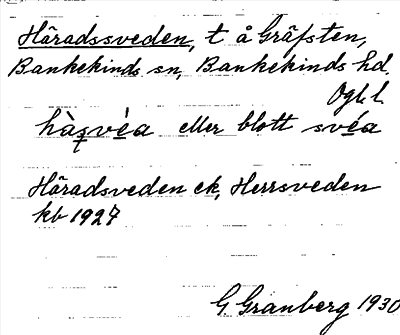 Häradssveden, t å Gräfsten,
Bankekinds sn, Bankekinds hd.
Ögl. l.
hàs̱vé̱a eller blott své̱a
Häradsveden ek, Herrsveden
kb 1927
G. Granberg 1930